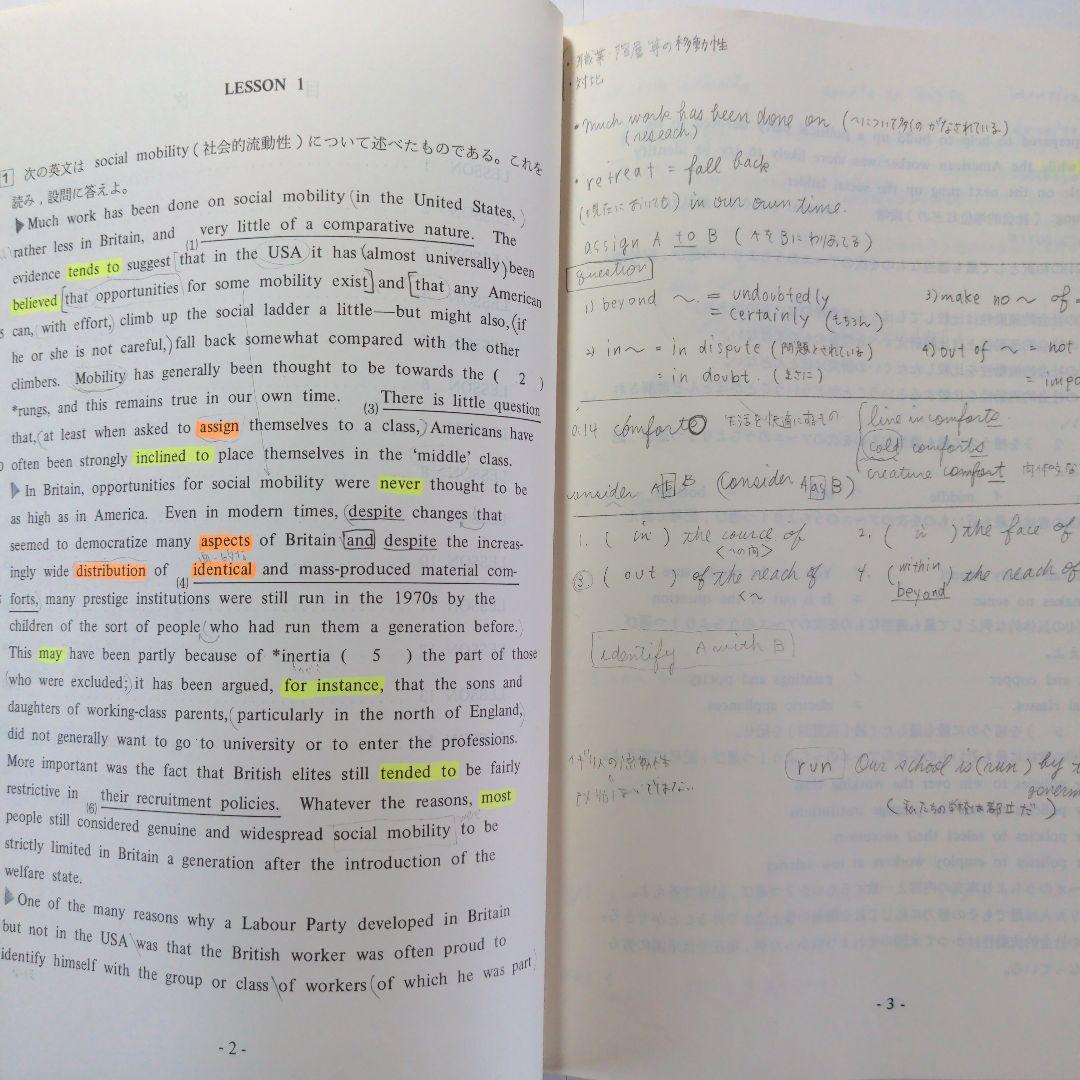 LESSON 1
1 次の英文は social mobility ( 社会的流動性 ) について述べたものである。これを
読み，設問に答えよ。
Much work has been done on social mobility in the United States,
rather less in Britain, and (1) very little of a comparative nature. The
evidence tends to suggest that in the USA it has almost universally been
believed that opportunities for some mobility exist and that any American
can, with effort, climb up the social ladder a little—but might also, if
he or she is not careful, fall back somewhat compared with the other
climbers. Mobility has generally been thought to be towards the ( 2 )
*rungs, and this remains true in our own time. (3) There is little question
that, at least when asked to assign themselves to a class, Americans have
often been strongly inclined to place themselves in the ‘middle’ class.
In Britain, opportunities for social mobility were never thought to be
as high as in America. Even in modern times, despite changes that
seemed to democratize many aspects of Britain and despite the increas-
ingly wide distribution of (4) identical and mass-produced material com-
forts, many prestige institutions were still run in the 1970s by the
children of the sort of people who had run them a generation before.
This may have been partly because of *inertia ( 5 ) the part of those
who were excluded; it has been argued, for instance, that the sons and
daughters of working-class parents, particularly in the north of England,
did not generally want to go to university or to enter the professions.
More important was the fact that British elites still tended to be fairly
restrictive in (6) their recruitment policies. Whatever the reasons, most
people still considered genuine and widespread social mobility to be
strictly limited in Britain a generation after the introduction of the
welfare state.
One of the many reasons why a Labour Party developed in Britain
but not in the USA was that the British worker was often proud to
identify himself with the group or class of workers (of which he was part
- 2 -
・職業・階層等の移動性
・対比
・much work has been done on (〜について多くの がなされている)
(reseach)
・retreat = fall back
in our own time.
assign A to B ( AをBにわりあてる )
question
1) beyond 〜. = undoubtedly
= certainly (もちろん)
3) make no 〜 of =
2) in 〜 = in dispute (問題とされている)
= in doubt. (まさに)
4) out of 〜 = not
= impo
p.14 comfort 生活を快適にするもの
line in comforts.
cold comforts
creature comfort
consider A B (consider A as B)
1. ( in ) the cource of
2. ( in ) the face of
③ ( out of the reach of
4. (within) the reach of
beyond
identify A with B
run Our school is (run) by t
governm
( 私たちの学校は都立だ )
- 3 -